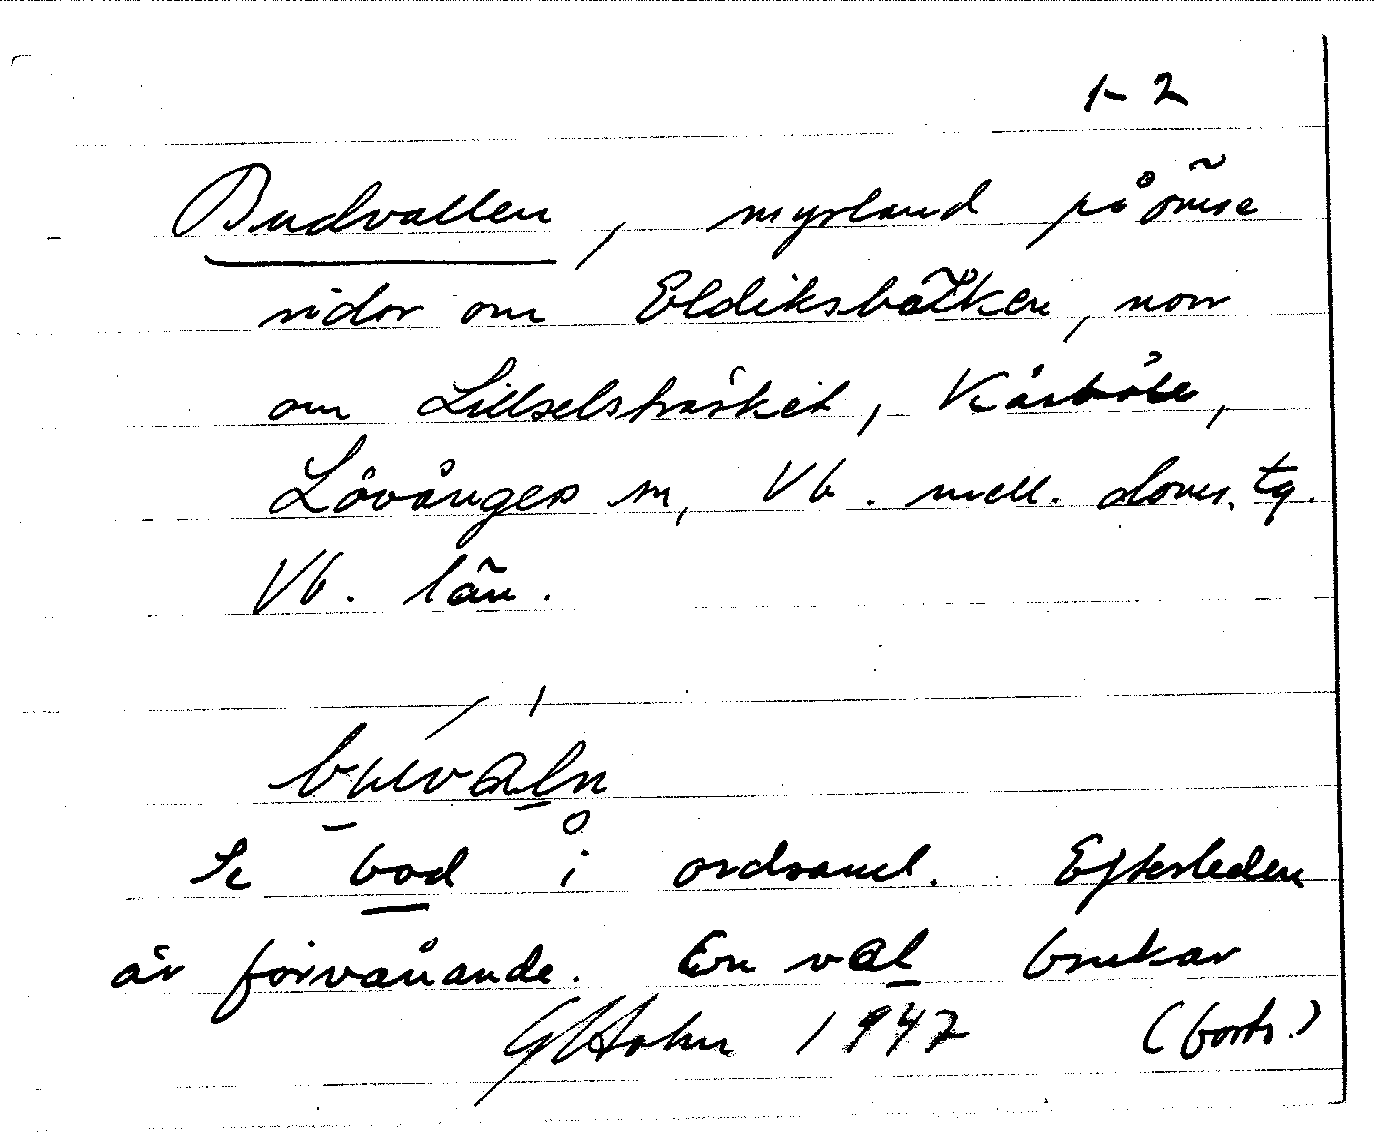 1-2
Budvallen, myrland på ömse
sidor om Eldiksbäcken, norr
om Lillselsträsket, Kårböle,
Lövångers sn, Vb. mell. doms. tg.
Vb. län.
Se bod i ordsaml. Efterleden
är förvånande. En val brukar
GHolm 1947 (forts.)